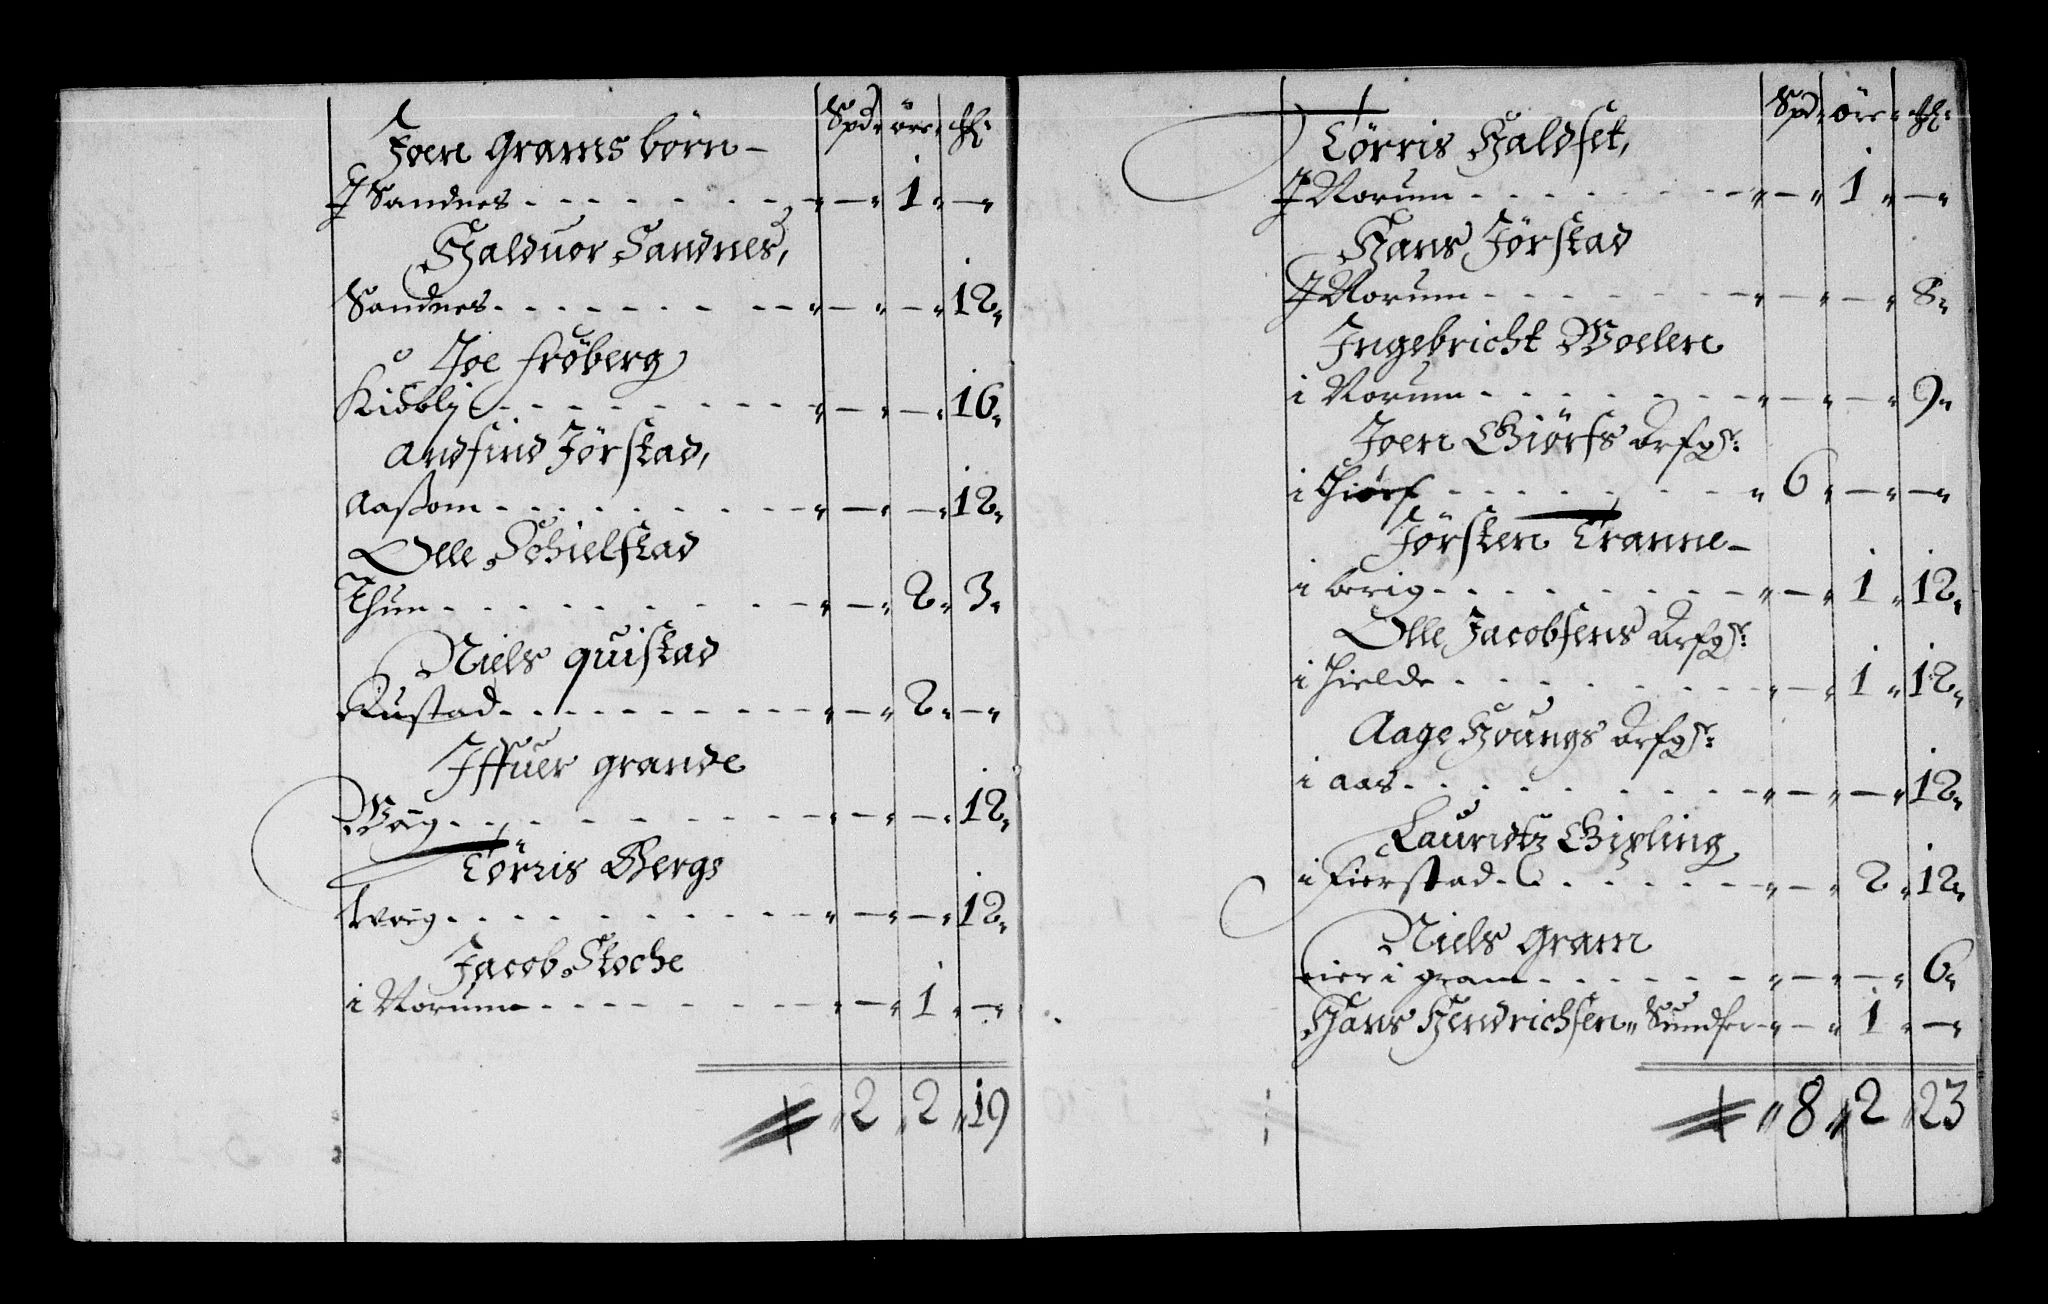 Spd„ öre„ ß:
Joen Grams börn –
J Sandnes - - - - - - - „ — „ 1 „ — „
Halduor Sandnes,
Sandnes - - - - - - - „ — „ — „ 12„
Joe fröberg
Kirkbÿ - - - - - - - „ — „ — „ 16„
Andfind Jörstad,
Aassom - - - - - - - „ — „ — „ 12„
Olle Schielstad
Thun - - - - - - - „ — „ 2„ 3„
Niels quistad
Rustad - - - - - - - „ — „ 2„ — „
Iffuer grande
Waag - - - - - - - „ — „ — „ 12„
Törris Bergs
waag - - - - - - - „ — „ — „ 12„
Jacob Stoche
i Norum - - - - - - - „ — „ 1 „ — „
„ 2 „ 2 „ 19
Spd„ öre„ ß:
Törris Haldset,
J Norum - - - - - - - „ — „ 1 „ — „
Hans Jörstad
J Norum - - - - - - - „ — „ — „ 8„
Ingebricht Woelen
i Norum - - - - - - - „ — „ — „ 9„
Joen Giörfs Arfg:
i Hiörf - - - - - - - „ 6 „ — „ — „
Törsten Tranne –
i berig - - - - - - - „ — „ 1 „ 12„
Olle Jacobsens Arfg:
i Hielde - - - - - - - „ — „ 1 „ 12„
Aage Houngs Arfg:
i aas - - - - - - - „ — „ — „ 12„
Lauridtz Brixling
i Fierstad - - - - - - - „ — „ 2 „ 12„
Niels Gram
eier i gram - - - - - - - „ — „ — „ 6„
Hans Hendrichsen„ Sundser - „ — „ 1 „ — „
„ 8 „ 2 „ 23